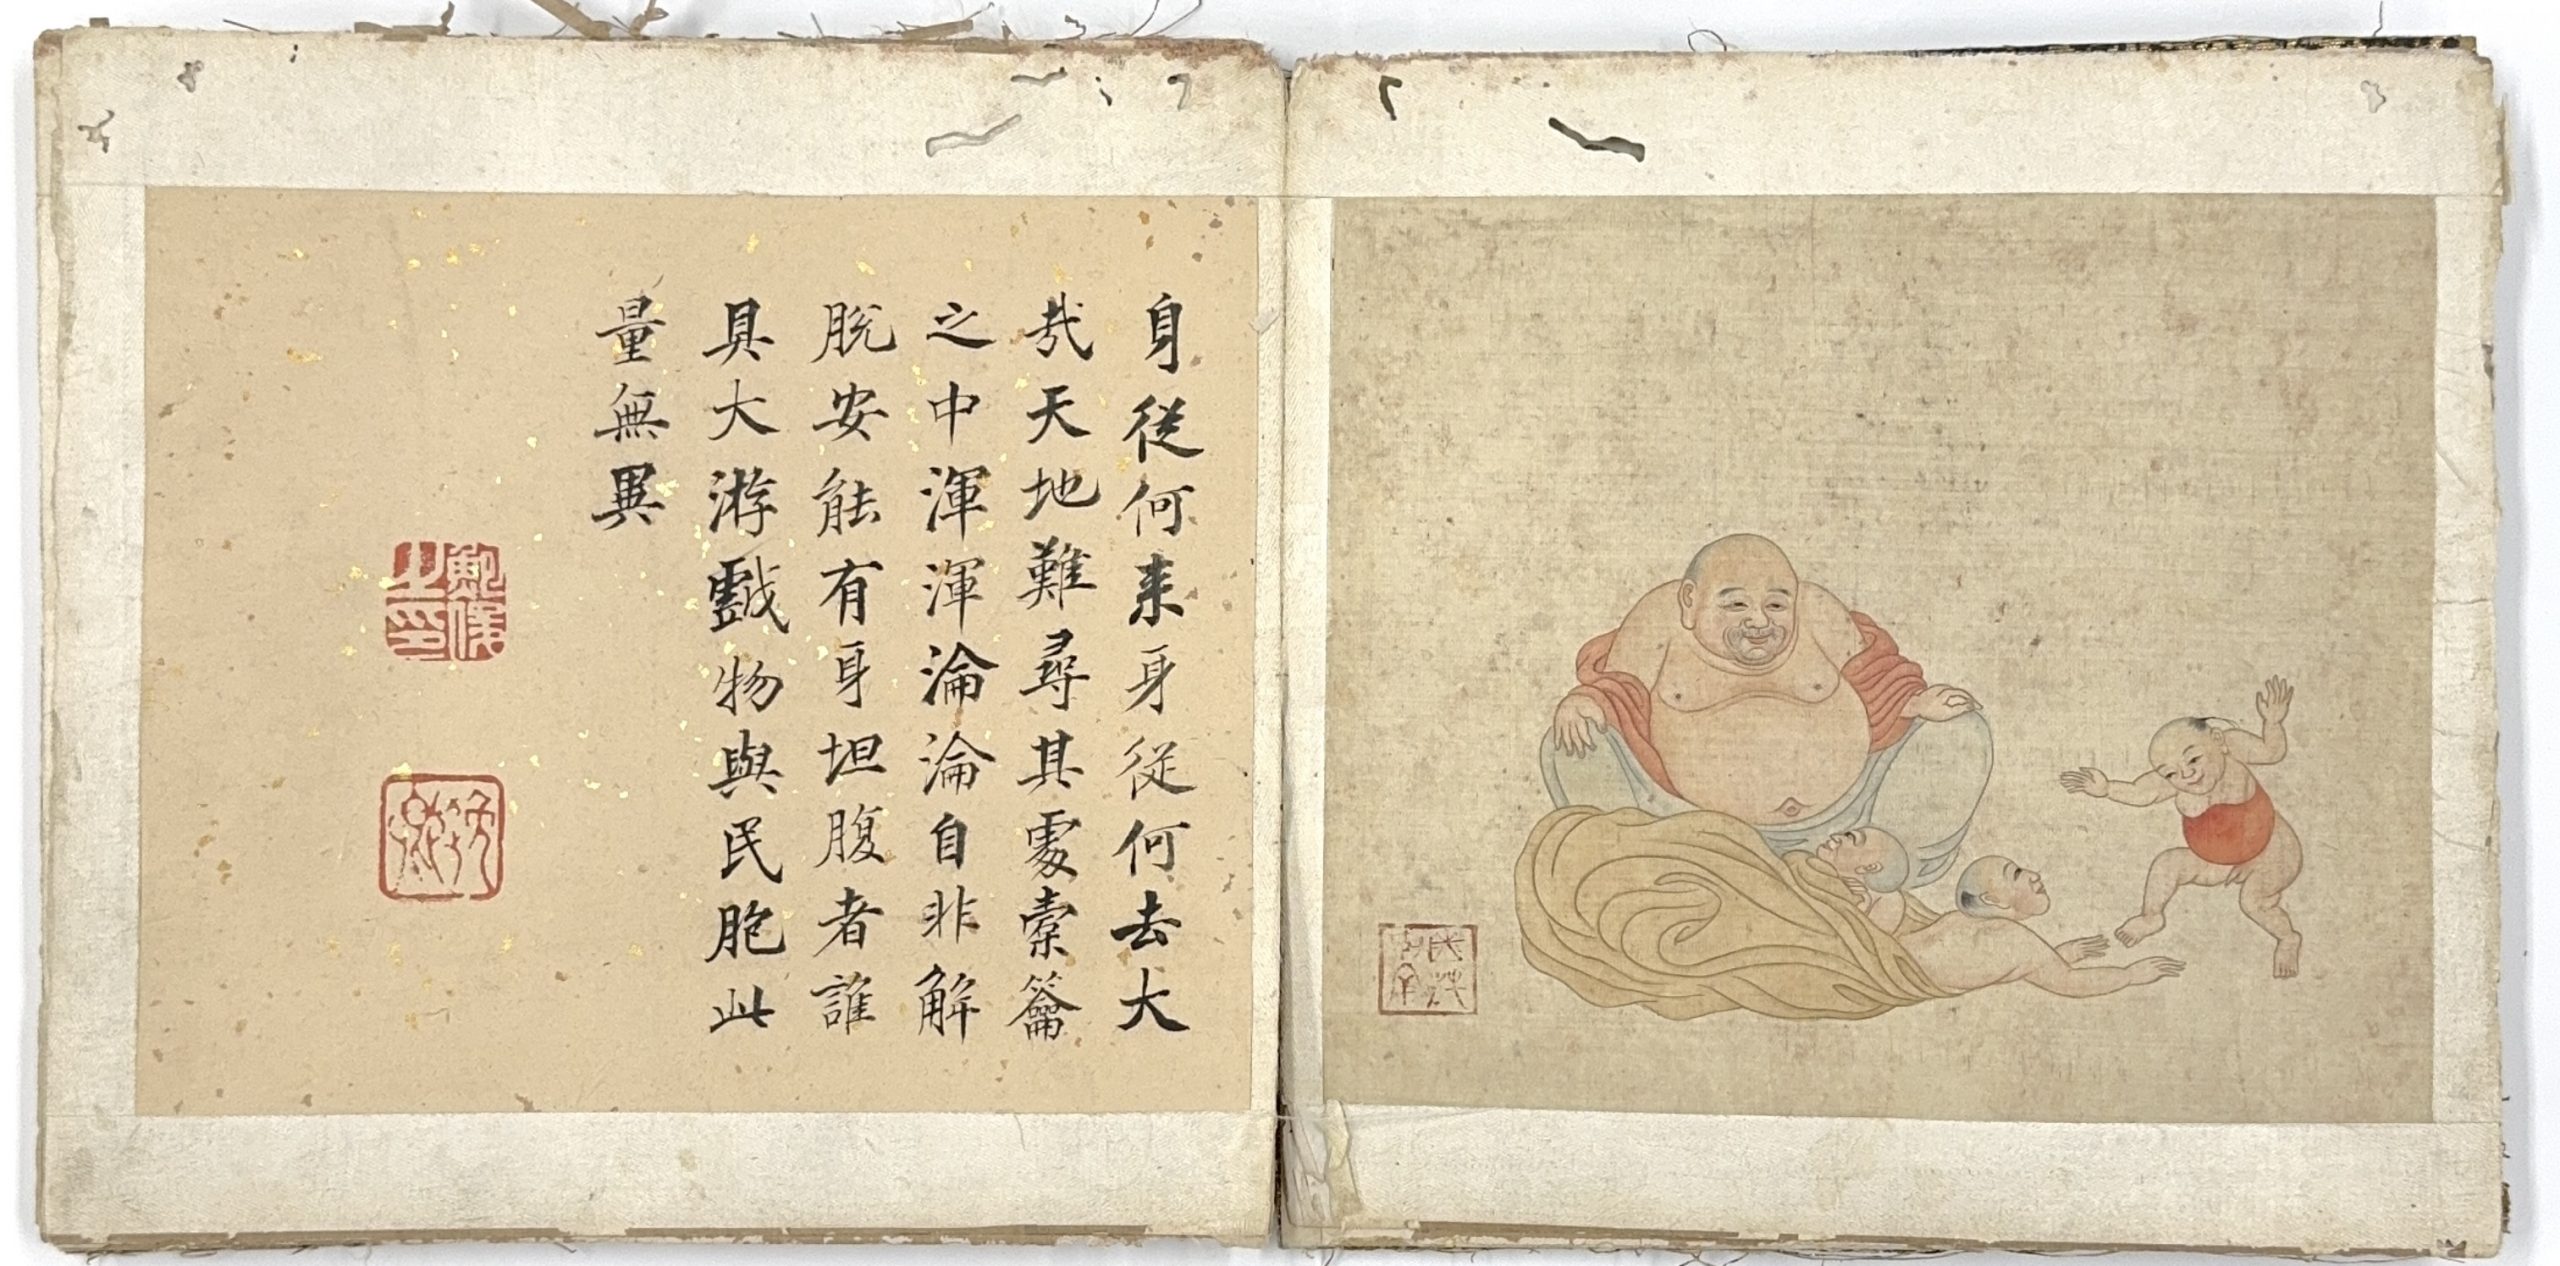 身從何来身從何去大
哉天地難尋其處橐籥
之中渾渾淪淪自非解
脫安能有身坦腹者誰
具大游戲物與民胞此
量無異